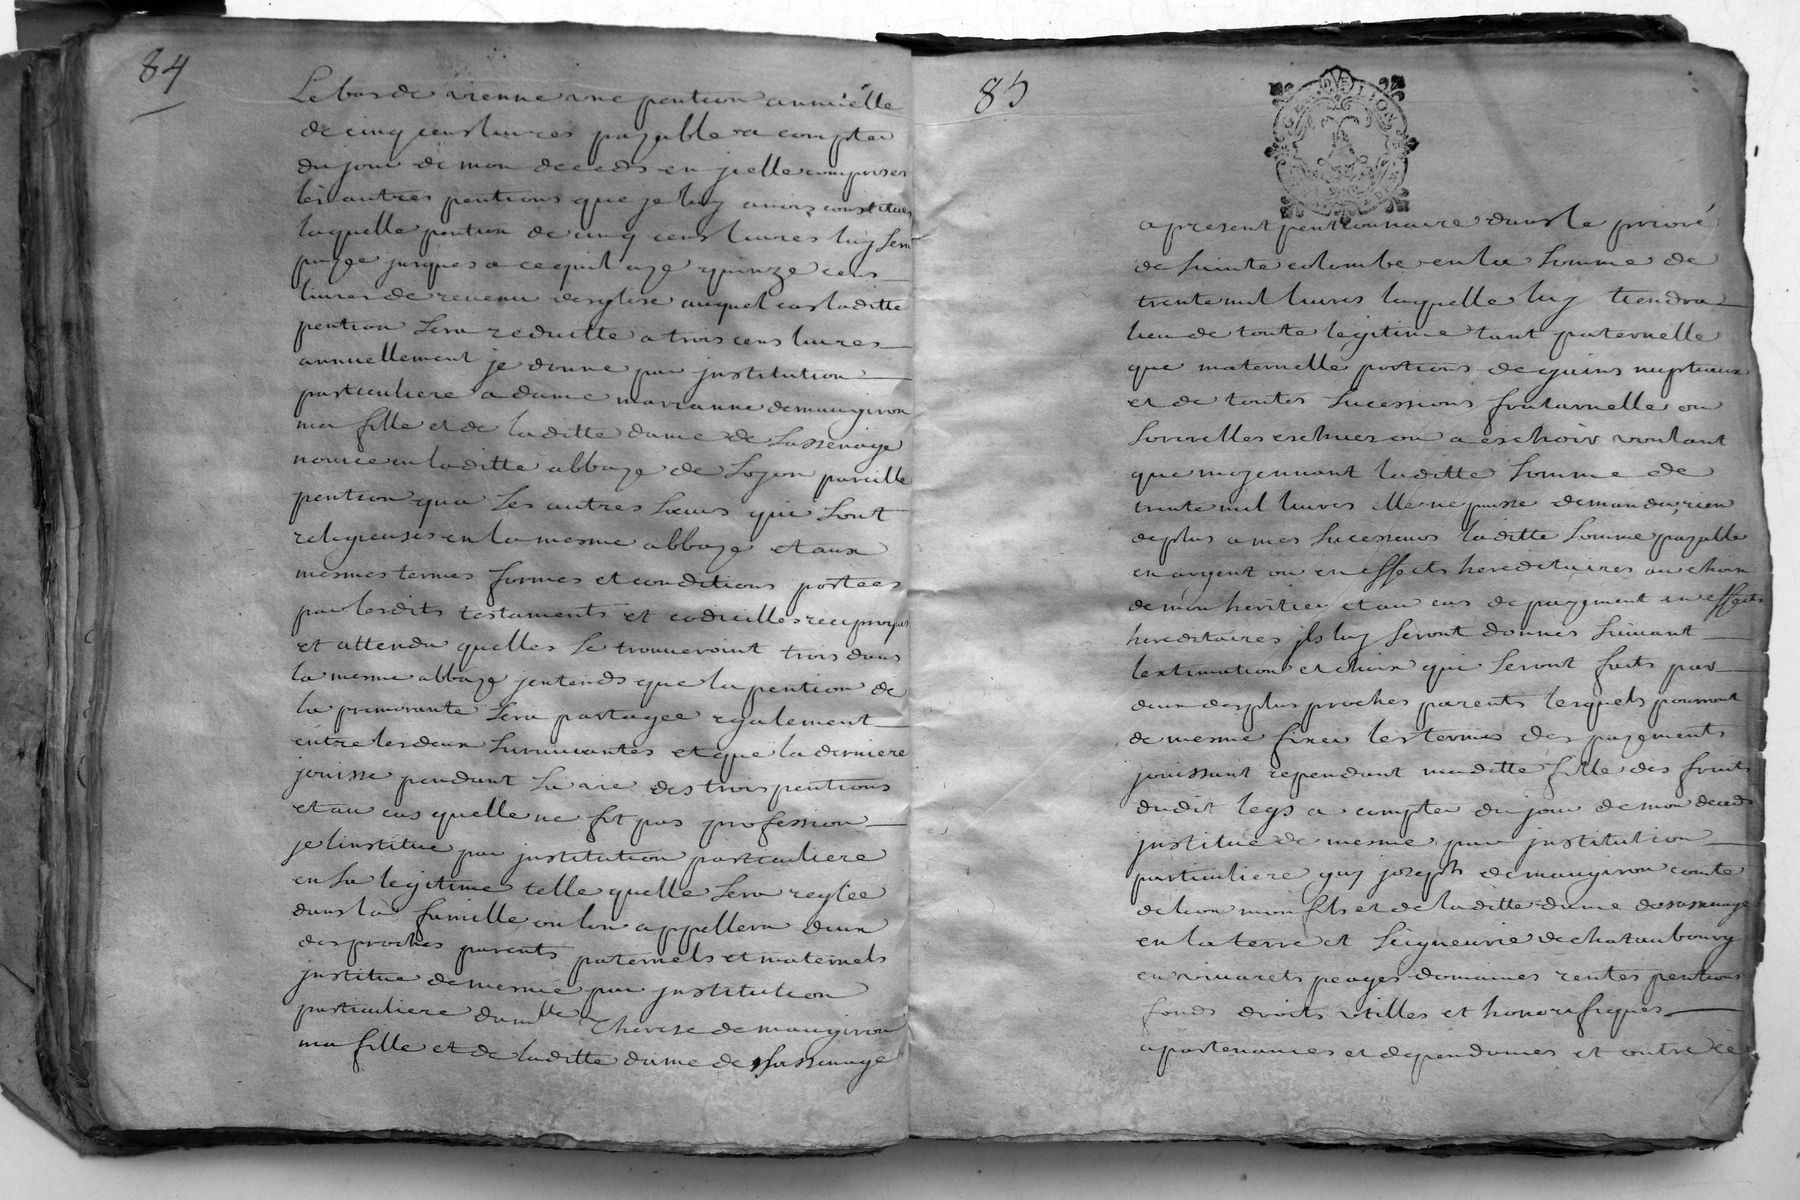 84
Le bas de vienne une pention annuëlle
de cinq cens livres payable a compter
du jour de mon deceds en jcelle comprises
les autres pentions que je luy avois constituées
laquelle pention de cinq cens livres luy sera
payée jusques a cequil aye quinze cens
livres de revenu desglise auquel cas laditte
pention sera reduitte a trois cens livres
annuellement je donne par justitution
particuliere a dame marianne demaugiron
ma fille et de laditte dame de Sassenage
novice en laditte abbaye de Soyon pareille
pention qua ses autres sœurs qui sont
religieuses en la mesme abbaye et aux
mesmes termes formes et conditions portees
par lesdits testaments et codicilles reciproques
et attendu quelles se trouveroint trois dans
la mesme abbaye jentends que la pention de
la premorante sera partagée egalement
entre les deux survivantes et que la derniere
jouisse pendant sa vie des trois pentions
et au cas quelle ne fit pas profession
je linstitue par justitution particuliere
en sa legitime telle quelle sera reglée
dans la famille ou lon appellera deux
des proches parents paternels et maternels
justitue demesme par justitution
particuliere dam.lle Therese demaugiron
ma fille et de laditte dame de Sassenage
85
DE LYON
apresent pentionnaire dans le prioré
de sainte colombe en la somme de
trente mil livres laquelle luy tiendra
lieu de toute legitime tant paternelle
que maternelle portions de gains nuptiaux
et de toutes sucessions fraternelle ou
sororelles eschues ou a eschoir voulant
que moyennant laditte somme de
trente mil livres elle ne puisse demander rien
de plus a mes sucesseurs laditte somme payable
en argent ou en effects hereditaires au choix
de mon heritier et au cas de payement en effects
hereditaires jls luy seront donnes suivant
lestimation et choix qui seront faits par
deux des plus proches parents lesquels pourront
de mesme fixer les termes des payements
jouissant cependant maditte fille des fruits
dudit legs a compter du jour de mon deceds
justitue de mesme par justitution
particuliere guy joseph demaugiron comte
de lion mon fils et de laditte dame desassenage
en la terre et seigneurie de chateaubourg
en vivarets peages domaines rentes pentions
fonds droits utilles et honorifiques
apartenances et dependances et outre ce